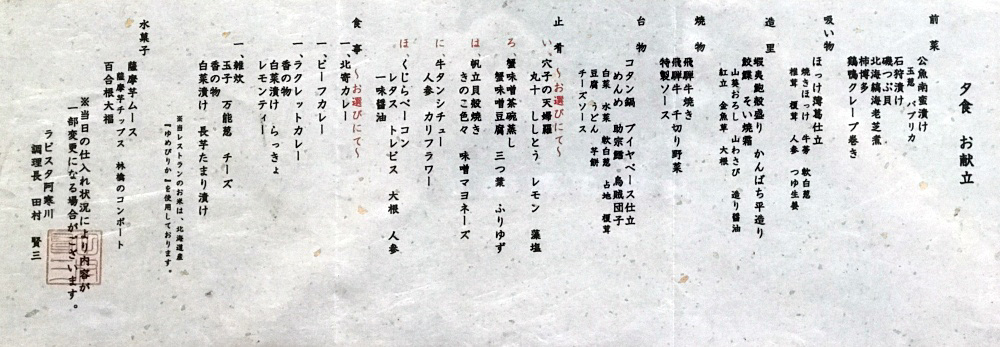 夕食　お献立
前菜
公魚南蛮漬け
玉葱　パプリカ
石狩漬け
磯つぶ貝
北海縞海老芝煮
柿博多
鶏鴨クレープ巻き
吸い物
ほっけ薄葛仕立
焼きほっけ　牛蒡　軟白葱
椎茸　榎茸　人参　つゆ生姜
造里
蝦夷鮑殻盛り　かんぱち平造り
鮫鰈　そい焼霜
山葵おろし　山わさび　造り醤油
紅立　金魚草　大根
焼物
飛騨牛焼き
飛騨牛　千切り野菜
特製ソース
台物
コタン鍋　ブイヤベース仕立
めんめ　助宗鱈　烏賊団子
白菜　水菜　軟白葱　占地　榎茸
豆腐　うどん　芋餅
チーズソース
止肴　～お選びにて～
い、穴子の天婦羅
丸十　ししとう　レモン　藻塩
ろ、蟹味噌茶碗蒸し
蟹味噌豆腐　三つ葉　ふりゆず
は、帆立貝殻焼き
きのこ色々　味噌マヨネーズ
に、牛タンシチュー
人参　カリフラワー
ほ、くじらベーコン
レタス　トレビス　大根　人参
一味醤油
食事　～お選びにて～
一、北寄カレー
一、ビーフカレー
一、ラクレットカレー
香の物
白菜漬け　らっきょ
レモンティー
一、雑炊
玉子　万能葱　チーズ
香の物
白菜漬け　長芋たまり漬け
※当レストランのお米は、北海道産
『ゆめぴりか』を使用しております。
水菓子
薩摩芋ムース
薩摩芋チップス　林檎のコンポート
百合根大福
※当日の仕入れ状況により内容が
一部変更になる場合がございます。
ラビスタ阿寒川
調理長　田村　賢三